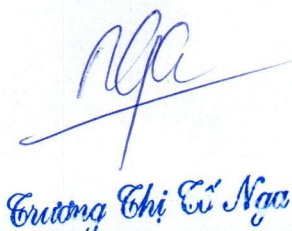 Nga
Trương Thị Tố Nga